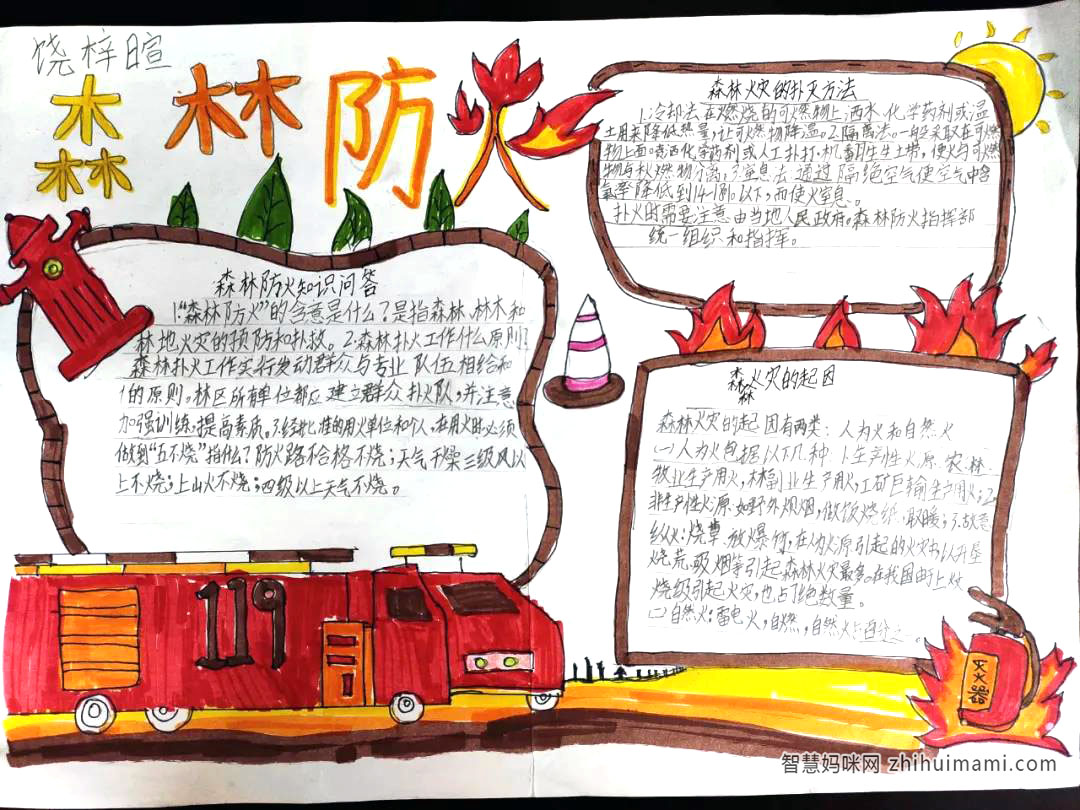 饶梓暄
森林防火
森林防火知识问答
1."森林防火"的含意是什么？是指森林、林木和
林地火灾的预防和扑救。2.森林扑火工作什么原则？
森林扑火工作实行发动群众与专业队伍相结和
的原则。林区所有单位都应建立群众扑火队,并注意
加强训练,提高素质。3.经批准的用火单位和个人,在用火时必须
做到"五不烧"指什么？防火路不合格不烧；天气干燥三级风以
上不烧；上山火不烧；四级以上天气不烧。
119
森林火灾的扑灭方法
1.冷却法在燃烧的可燃物上洒水、化学药剂或湿
土用来降低热量,让可燃物降温。2.隔离法。一般采取在可燃
物上面喷洒化学药剂或人工扑打、机翻生土带,使火与可燃
物与未燃物分离。3.窒息法:通过隔绝空气使空气中含
氧率降低到14-18%以下,而使火窒息。
扑火时需要注意由当地人民政府。森林防火指挥部
统一组织和指挥。
森林火灾的起因
森林火灾的起因有两类：人为火和自然火
(一)人为火包据以下几种 1.生产性火源:农、林、
牧业生产用火,林副业生产用火,工矿巨输生产用火；2.
非生产性火源:如野外烦烟,做饭烧纸、取暖；3.故意
纵火:烧草、放爆竹,在人为火源引起的火灾中以开垦
烧荒、吸烟等引起森林火灾最多。在我国由于上坟
烧级引起火灾,也占绝数量。
(二)自然火:雷电火,自燃,自然火占百分之一。
灭火器
智慧妈咪网 zhihuimami.com